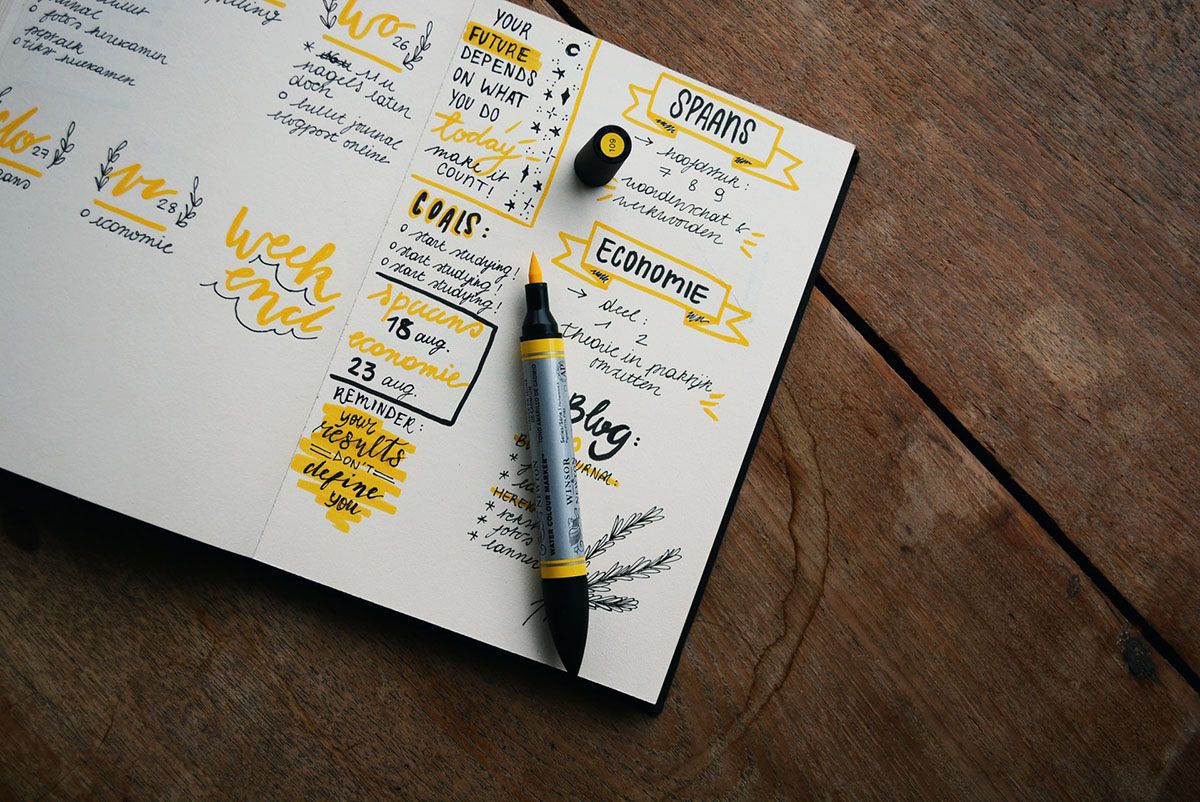 journal
foto's herexamen
peptalk
tekst herexamen
wo
26
* 11u
nagels laten
doen
o bullet journal
blogpost online
do
27
vr
28
o economie
week
end
YOUR
FUTURE
DEPENDS
ON WHAT
YOU DO
today
make it
COUNT!
GOALS:
o start studying!
o start studying!
o start studying!
spaans
18 aug.
economie
23 aug.
REMINDER:
your
results
DON'T
define
you
SPAANS
→ hoofdstuk:
7 8 9
woordenschat &
werkwoorden
ECONOMIE
→ deel:
1 2
theorie in praktijk
omzetten
Blog:
JOURNAL:
HEREX
* foto's
* banner
109
WATER COLOUR MARKER™
WINSOR
NEWTON